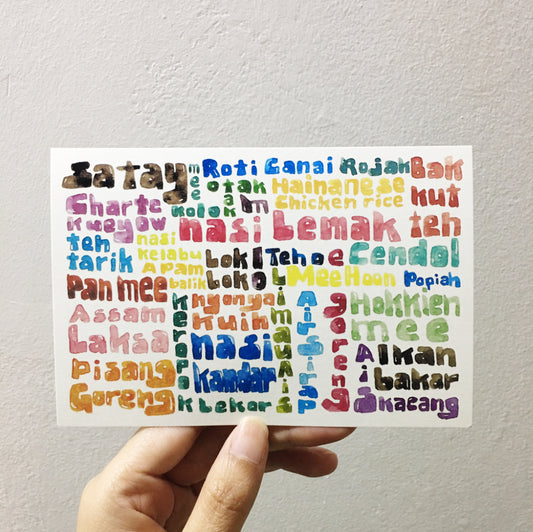 Satay
mee
Kolok
Roti Canai
Rojak
Bak
kut
teh
otak
otak
Hainanese
Chicken rice
Charte
Kueyow
nasi Lemak
teh
tarik
nasi
Kelabu
Apam
balik
Lok
Lok
Teh o
Limau ais
Cendol
Mee Hoon
goreng
Popiah
Pan mee
Assam
Laksa
Keropok Lekor
nyonyai
Kuih
Air Sirap
Hokkien
mee
Pisang
Goreng
nasi
kandar
Ikan
bakar
Ais
Kacang